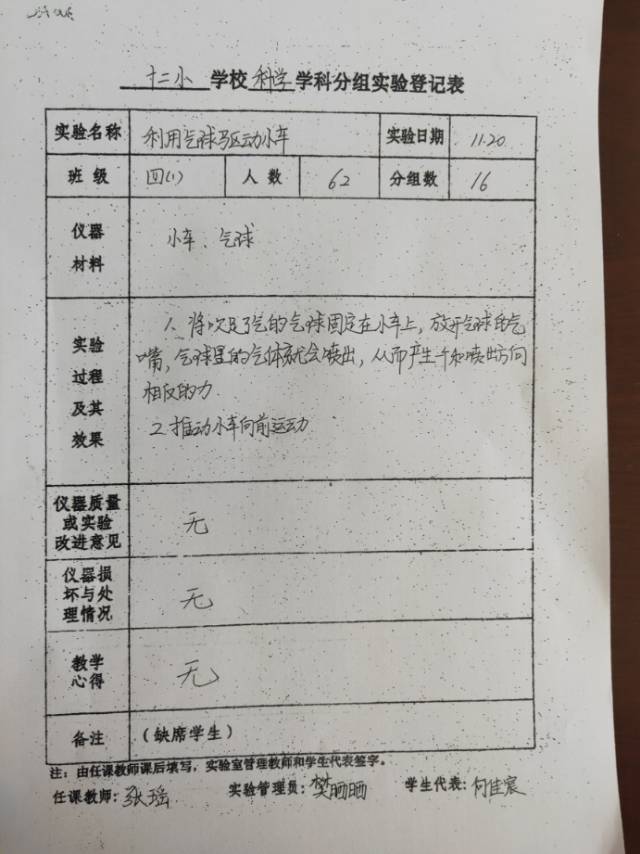 十二小 学校 科学 学科分组实验登记表
实验名称 利用气球驱动小车 实验日期 11.20
班 级 四(1) 人 数 62 分组数 16
仪器
材料
小车、气球
实验
过程
及其
效果
1、将吹足了气的气球固定在小车上，放开气球的气
嘴，气球里的气体就会喷出，从而产生个和喷出方向
相反的力.
2.推动小车向前运动
仪器质量
或实验
改进意见
无
仪器损
坏与处
理情况
无
教学
心得
无
备注 (缺席学生)
注：由任课教师课后填写，实验室管理教师和学生代表签字。
任课教师: 张瑶 实验管理员: 樊晒晒 学生代表: 何佳宸